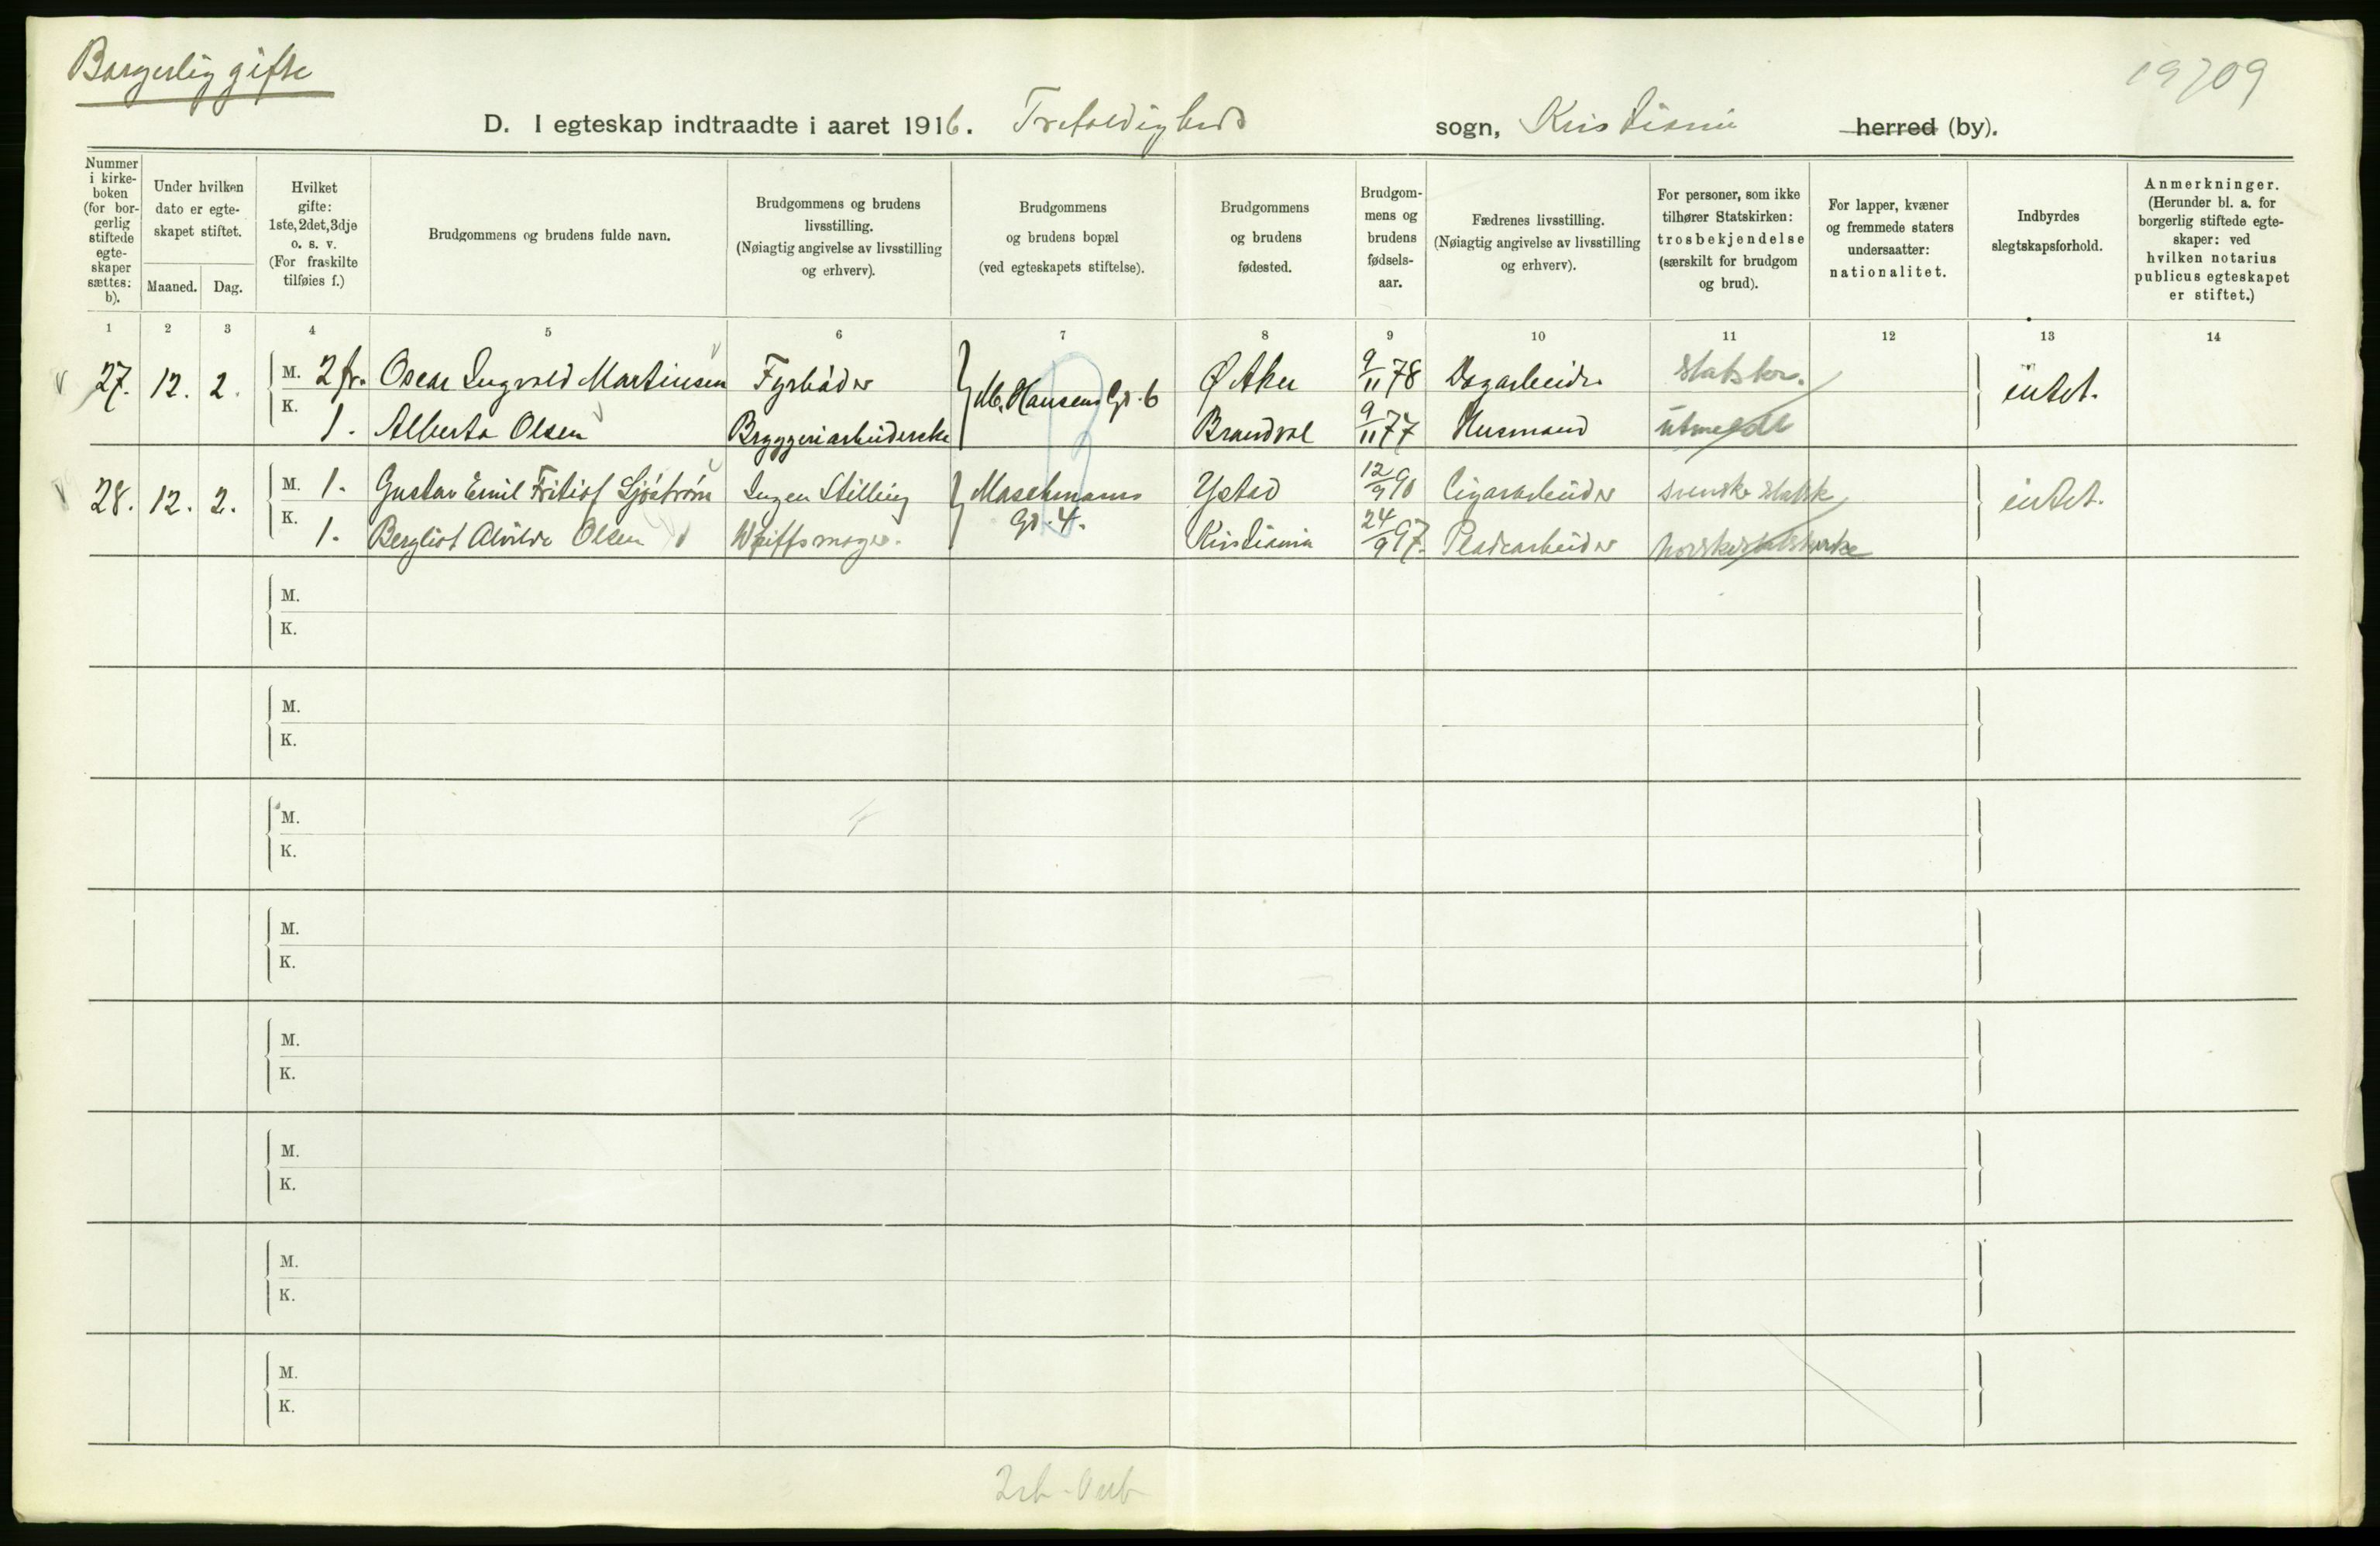 Borgerlig gifte
19709
D. I egteskap indtraadte i aaret 1916. Trefoldigheds sogn, Kristiania herred (by).
Nummer i kirkeboken (for borgerlig stiftede egteskaper sættes: b).
Under hvilken dato er egteskapet stiftet.
Maaned. Dag.
Hvilket gifte: 1ste, 2det, 3dje o. s. v. (For fraskilte tilføies f.)
Brudgommens og brudens fulde navn.
Brudgommens og brudens livsstilling. (Nøiagtig angivelse av livsstilling og erhverv).
Brudgommens og brudens bopæl (ved egteskapets stiftelse).
Brudgommens og brudens fødested.
Brudgommens og brudens fødselsaar.
Fædrenes livsstilling. (Nøiagtig angivelse av livsstilling og erhverv).
For personer, som ikke tilhører Statskirken: trosbekjendelse (særskilt for brudgom og brud).
For lapper, kvæner og fremmede staters undersaatter: nationalitet.
Indbyrdes slegtskapsforhold.
Anmerkninger. (Herunder bl. a. for borgerlig stiftede egteskaper: ved hvilken notarius publicus egteskapet er stiftet.)
1 2 3 4 5 6 7 8 9 10 11 12 13 14
27. 12. 2. M. 2 fr. Oscar Ingvald Martinsen Fyrbøder M. Hansens Gd. 6 Ø Aker 9/11 78 Dagarbeider Statskr. intet.
K. 1. Alberta Olsen Bryggeriarbeiderske Brandval 9/11 77 Husmand utmeldt
28. 12. 2. M. 1. Gustav Emil Fritiof Sjöström Ingen Stilling Maschmanns Ystad 12/9 90 Cigararbeider svenske statsk intet.
Gd. 4.
K. 1. Bergliot Alvilde Olsen Kristiania 24/9 97. Pladearbeider Norske statskirke
M.
K.
M.
K.
M.
K.
M.
K.
M.
K.
M.
K.
M.
K.
M.
K.